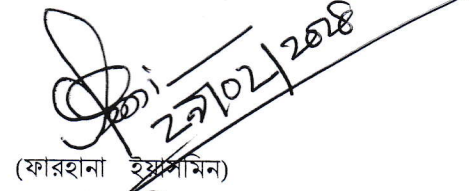 ২৯/০২/২০২৪
(ফারহানা ইয়াসমিন)